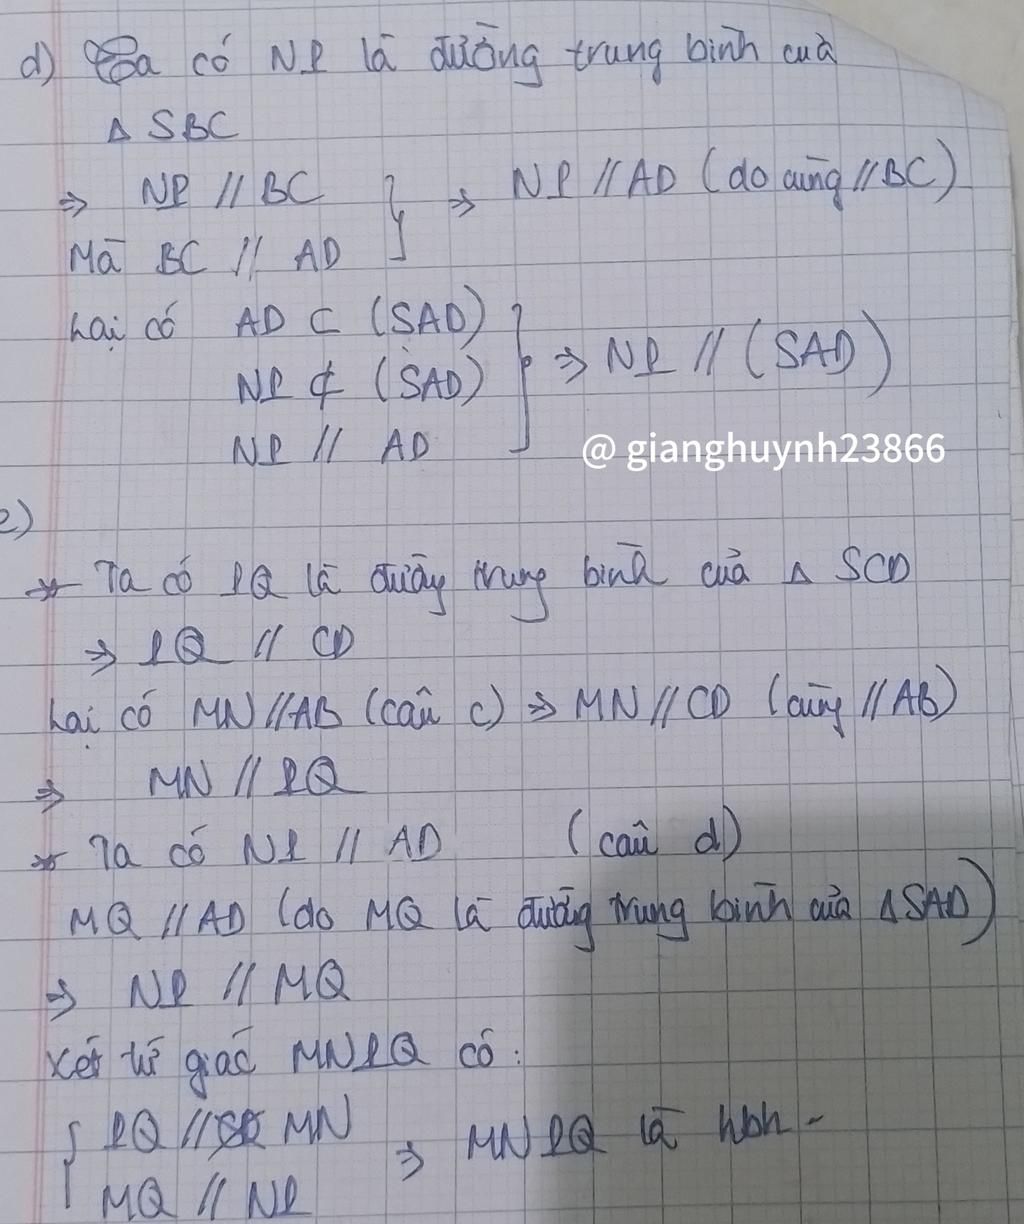 d) Ta có NP là đường trung bình của
Δ SBC
⇒ NP // BC } ⇒ NP // AD (do cùng // BC)
Mà BC // AD
Lại có AD ⊂ (SAD)
NP ⊄ (SAD) } ⇒ NP // (SAD)
NP // AD
@ gianghuynh23866
e)
* Ta có PQ là đường trung bình của Δ SCD
⇒ PQ // CD
Lại có MN // AB (câu c) ⇒ MN // CD (cùng // AB)
⇒ MN // PQ
* Ta có NP // AD (câu d)
MQ // AD (do MQ là đường trung bình của Δ SAD)
⇒ NP // MQ
Xét tứ giác MNPQ có:
{ PQ // MN ⇒ MNPQ là hbh -
MQ // NP